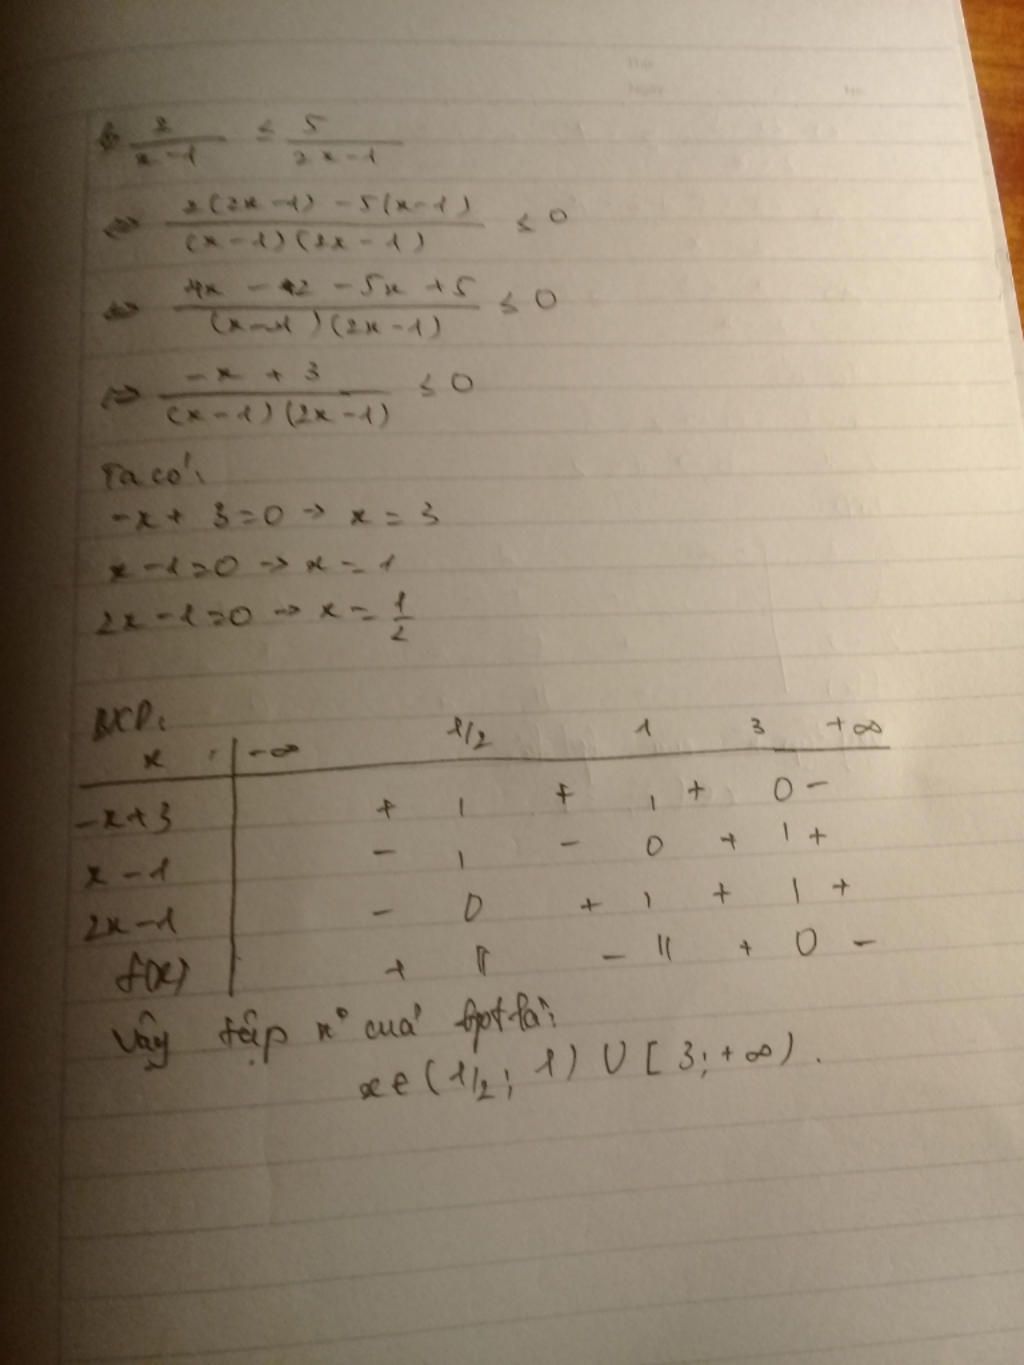 2/(x-1) ≤ 5/(2x-1)
⇔ (2(2x-1) - 5(x-1))/((x-1)(2x-1)) ≤ 0
⇔ (4x - 2 - 5x + 5)/((x-1)(2x-1)) ≤ 0
⇔ (-x + 3)/((x-1)(2x-1)) ≤ 0
Ta có:
-x + 3 = 0 → x = 3
x - 1 = 0 → x = 1
2x - 1 = 0 → x = 1/2
BXD:
x -∞ 1/2 1 3 +∞
-x+3 + | + | + 0 -
x-1 - | - 0 + | +
2x-1 - 0 + | + | +
f(x) + || - || + 0 -
Vậy tập n° của bpt là:
x ∈ (1/2; 1) ∪ [3; +∞).